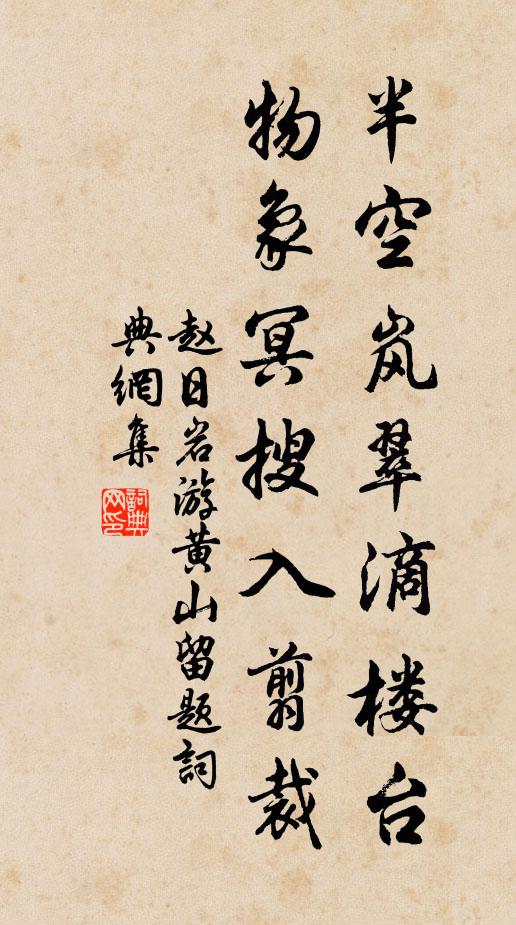 半空岚翠滴楼台
物象冥搜入翦裁
赵日岩游黄山留题词
典網集
詞典網印